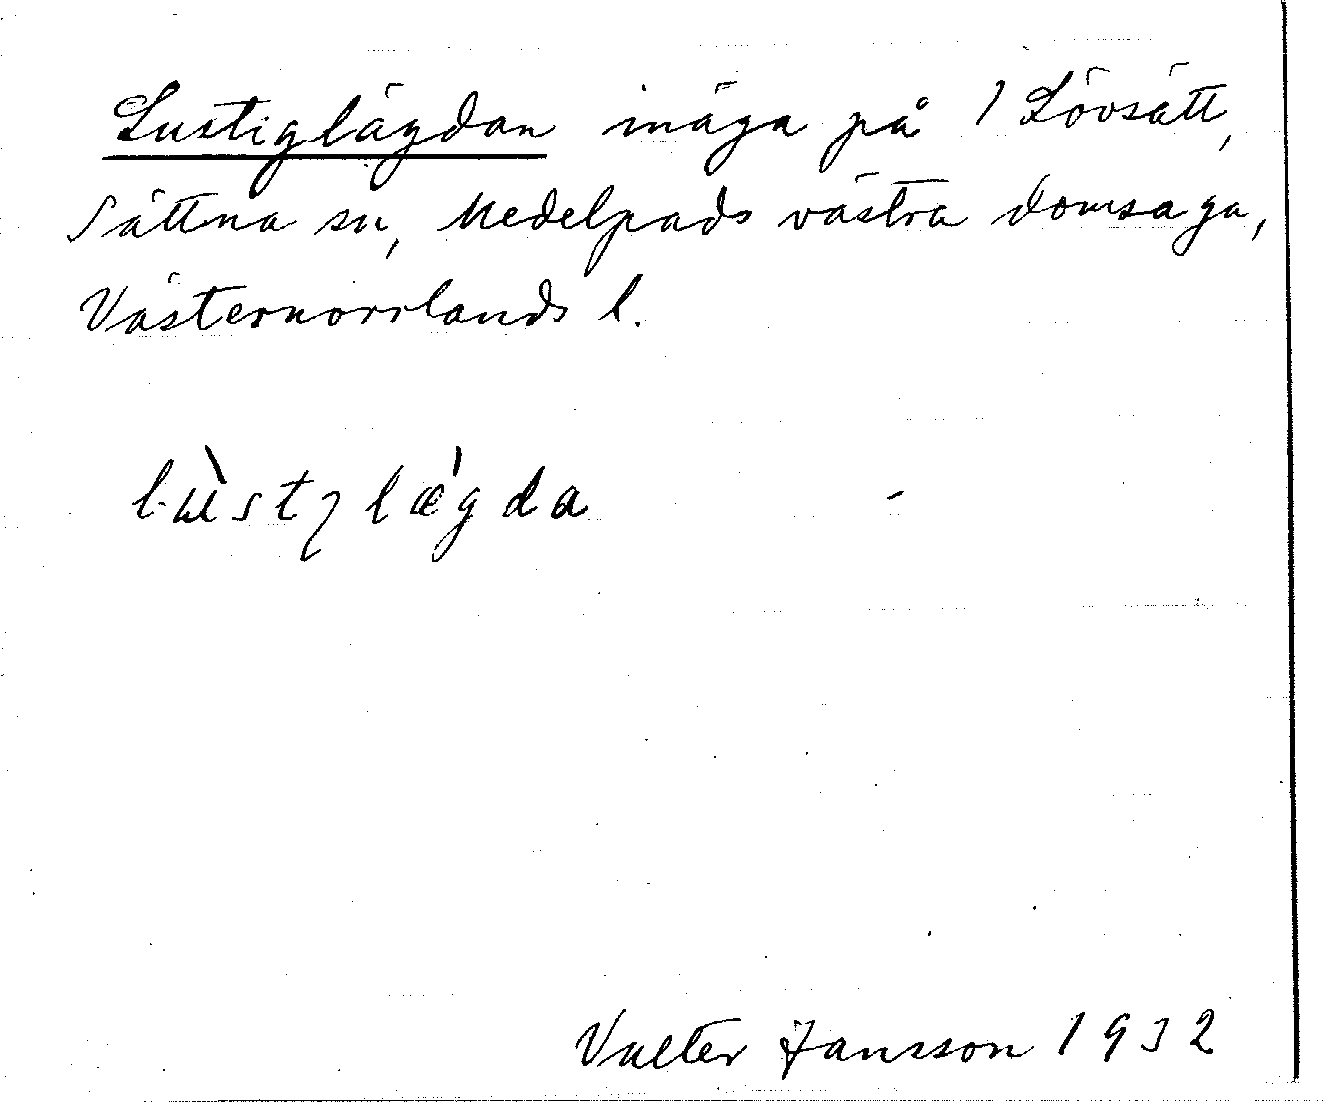 Lustiglägdan inäga på 1 Lövsätt,
Sättna sn, Medelpads västra domsaga,
Västernorrlands l.
lùstɩlǽgda
Valter Jansson 1932